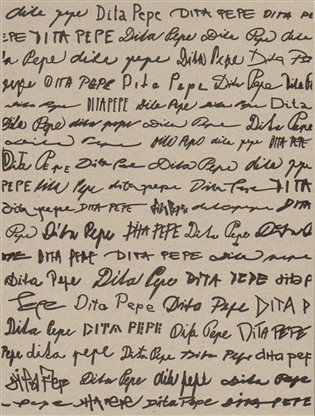 dita pepe Dita Pepe DITA PEPE DITA P
EPE DITA PEPE Dita Pepe Dita Pepe dita
a Pepe dita pepe Dita Pepe Dita P
pepe DITA PEPE Dita Pepe Dita Pepe Dita
DITA PEPE Dita Pepe Dita
Dita Pepe dita pepe Dita Pepe Dita Pepe
Dita Pepe dita pepe DITA PEPE
DITA PEPE Dita Pepe Dita Pepe dita pepe
PEPE Dita Pepe dita pepe Dita Pepe DITA
dita pepe DITA PEPE dita pepe DITA
Pepe Dita Pepe DITA PEPE Dita Pepe
DITA PEPE DITA PEPE Dita Pepe dita
Dita Pepe Dita Pepe DITA PEPE DITA P
Pepe Dita Pepe Dita Pepe DITA P
Dita Pepe DITA PEPE Dita Pepe DITA PEPE
Pepe dita pepe Dita Pepe Dita Pepe dita pepe
DITA PEPE Dita Pepe dita pepe dita Pepe
pepe DITA PEPE Dita Pepe DITA PEPE